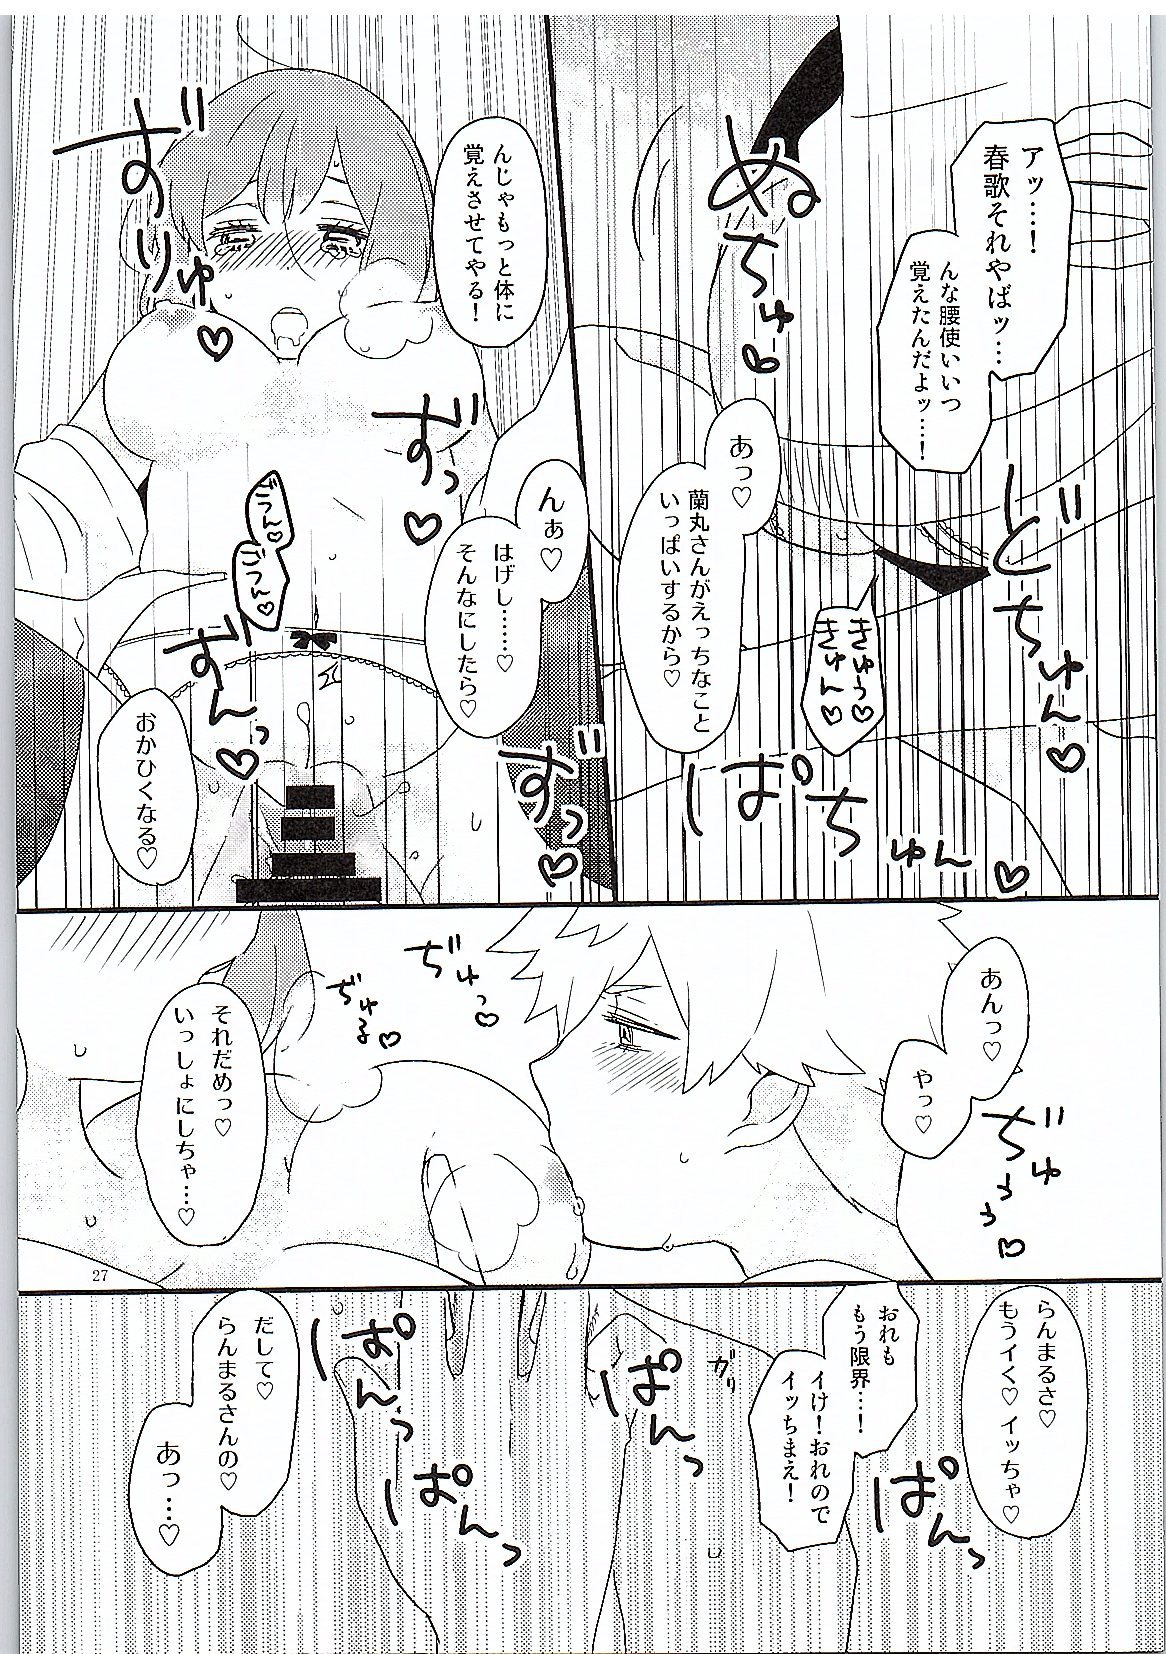 アッ…！
春歌それやばッ…
んな腰使いいつ
覚えたんだよッ…！
ぬちゅ♡
あっ♡
蘭丸さんがえっちなこと
いっぱいするから♡
どちゅん♡
きゅぅ♡
きゅん♡
ぱちゅん♡
んじゃもっと体に
覚えさせてやる！
ずりゅ♡
ずっ♡
んぁ♡
はげし……♡
そんなにしたら♡
ごつん♡
ごつん♡
ずんっ♡
ずっ♡
おかひくなる♡
あんっ♡
やっ♡
ぢゅぅぅ♡
ぢゅっ♡
ぢゅる♡
それだめっ♡
いっしょにしちゃ…♡
らんまるさ♡
もうイく♡イッちゃ♡
おれも
もう限界…！
イけ！おれので
イッちまえ！
ぱんっ
ガリ
ぱんっ
ぱんっ
ぱんっ
だして♡
らんまるさんの♡
あっ…♡
27